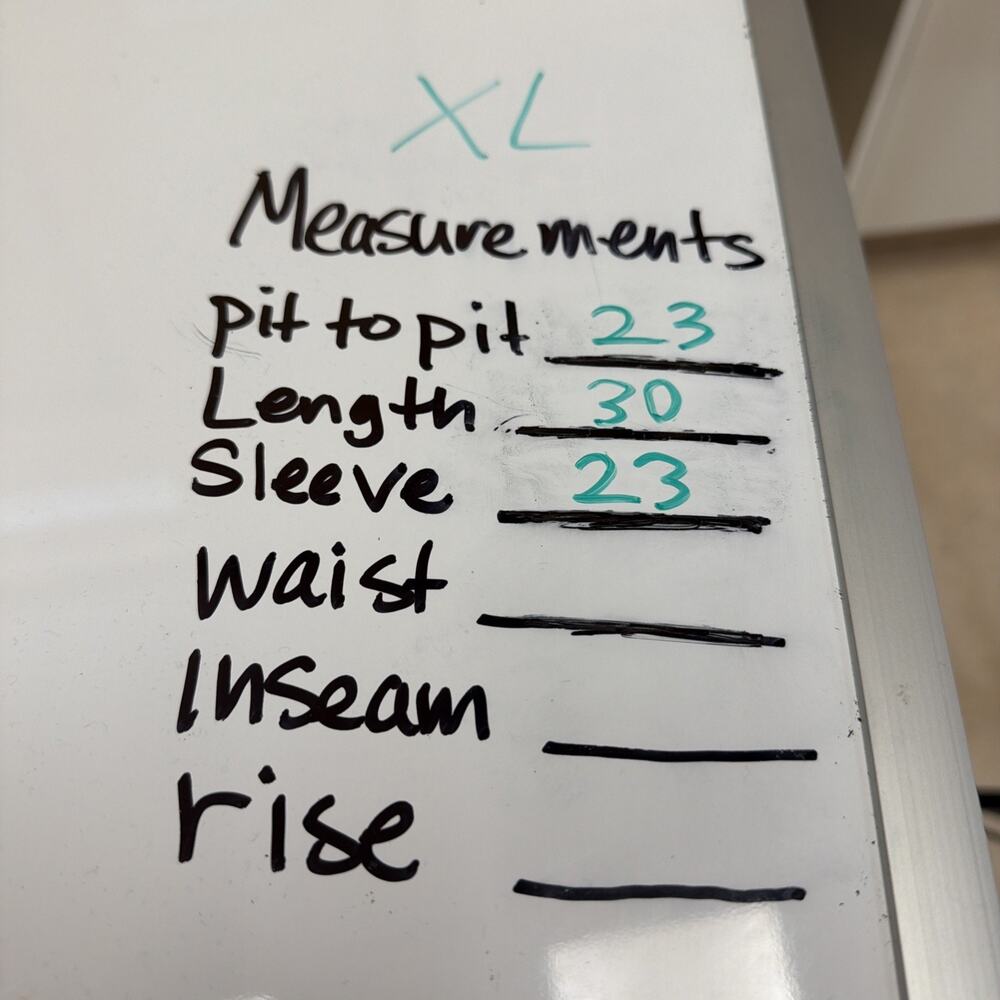 XL
Measurements
pit to pit 23
Length 30
Sleeve 23
waist
Inseam
rise